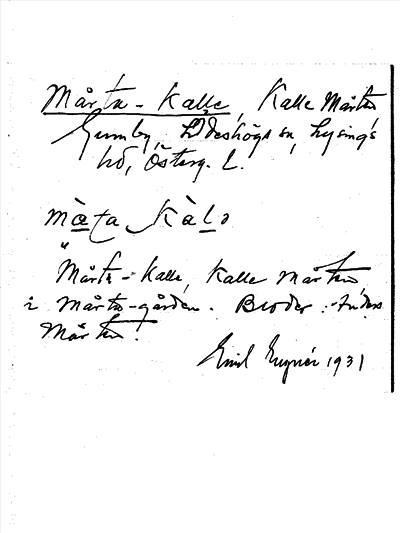 Mårta-Kalle, Kalle Mårten
Gumby, Ödeshögs sn, Lysings
hd, Österg. L.
mæ̀ta Kàlə
"Mårta-Kalle, Kalle Mårten
i Mårta-gården. Broder: Anders
Mårten.
Emil 1931